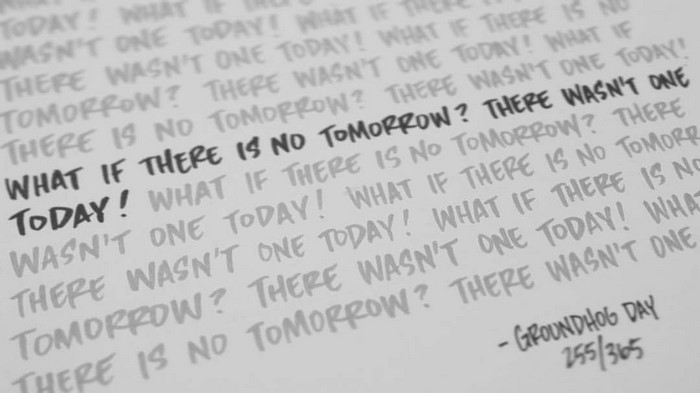 TODAY! WHAT IF
WASN'T ONE TODAY! WHAT IF THERE
THERE WASN'T ONE TODAY! WHAT IF THERE IS NO
TOMORROW? THERE WASN'T ONE TODAY! WHAT IF
THERE IS NO TOMORROW? THERE WASN'T ONE TODAY!
WHAT IF THERE IS NO TOMORROW? THERE WASN'T ONE
TODAY! WHAT IF THERE IS NO TOMORROW? THERE
WASN'T ONE TODAY! WHAT IF THERE IS NO TOMORR
THERE WASN'T ONE TODAY! WHAT IF THERE IS NO
TOMORROW? THERE WASN'T ONE TODAY! WHAT
THERE IS NO TOMORROW? THERE WASN'T ONE
- GROUNDHOG DAY
255/365